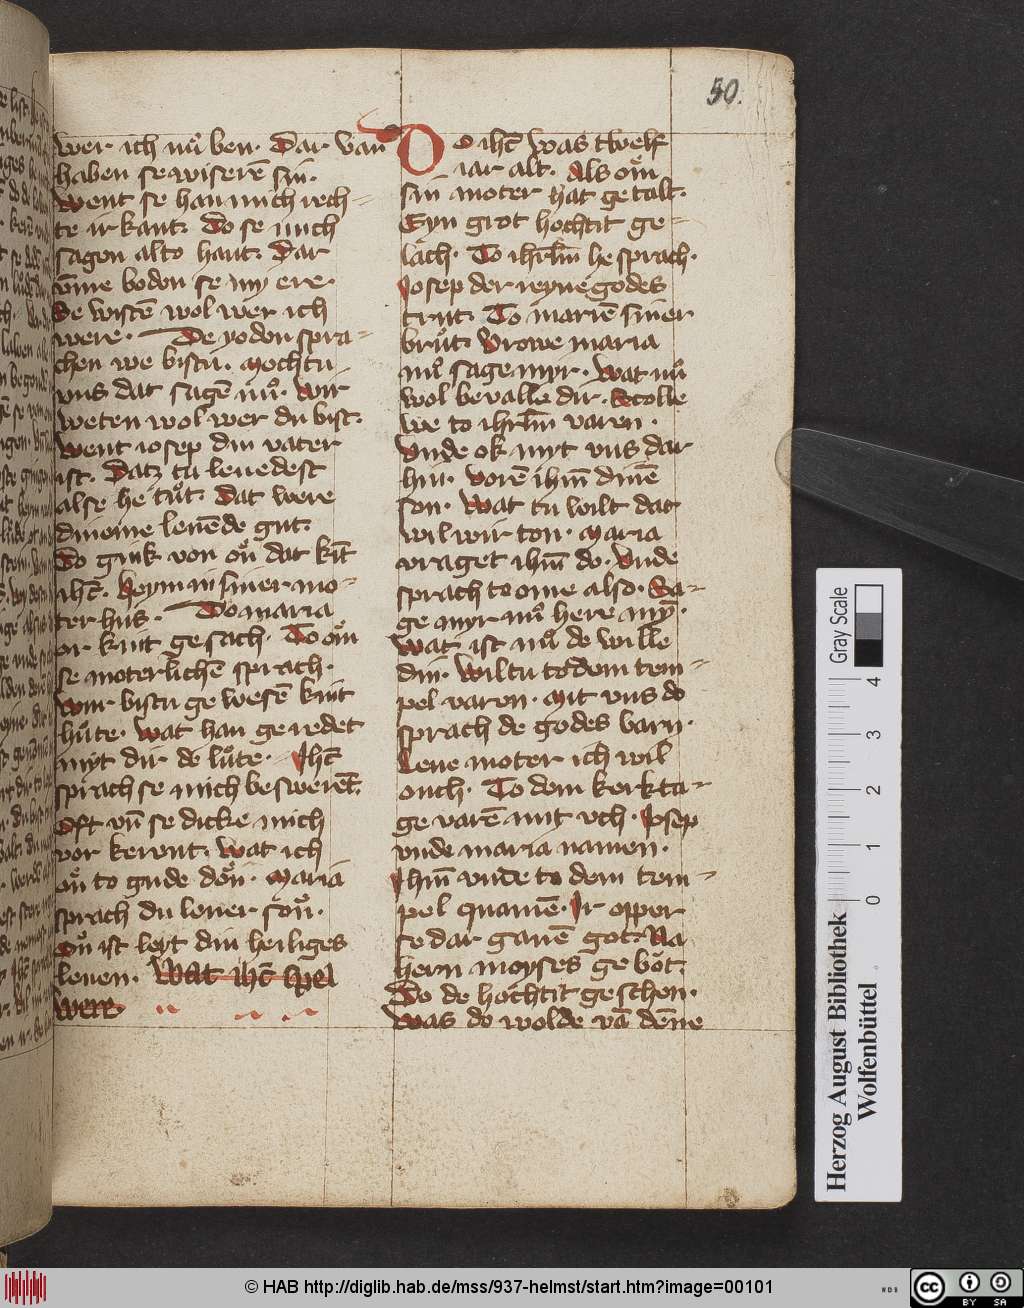 50.
wer ich nů ben. Dar van
haben se wiserē sin.
Went se han mich rech-
te irkant. Do se mich
sagen alto hant. Dar
v̄me boden se my ere.
Se wistē wol wer ich
were. De yoden spra-
chen we bistu. Mochtu
vns dat sagē nů. Wir
weten wol wer du bist.
Went iosep din vater
ist. Datz tu leuedest
alse he tůt. Dat were
dineme leuēde gut.
Do gink von on̊ dat kīt
ihc̄. heym in siner mo-
ter hus. Do maria
or kint gesach. To om̊
se moterlichē sprach.
Wur bistu gewesē kint
hůte. Wat han geredet
myt dir de lůte. Ihc̄
sprach se mich besweret.
Oft vn̄ se dicke mich
vor kernt. Wat ich
on̊ to gude dön. Maria
sprach du leuer sön.
On̊ ist leyt din heiliges
leuen. Wat ihc̄ spel
were
Do ihc̄ was twelf
iar alt. Als om̊
sin moter hat getalt.
Eyn grot hochtit ge-
lach. To ihrl̄m he sprach.
Iosep der reyne godes
trut. To mariē siner
brůt. Vrowe maria
nů sage myr. Wat nů
wol beualle dir. Scolle
we to ihrl̄m varen.
Vnde ok myt vns dar
hin. Vorē ihm̄ dinē
son. Wat tu wilt dat
wil wir ton. Maria
vraget ihm̄ do. Vnde
sprach to ome also. Sa-
ge myr nů here myn̄.
Wat ist nů de wille
din. Wiltu to dem tem-
pel varen. Mit vns do
sprach de godes barn.
Leue moter ich wil
ouch. To dem kerkta-
ge varē mit vch. Iosep
vnde maria namen.
Ihm̄ vnde to dem tem-
pel quamē. Ir opper
se dar gauē got. Na
hern moyses gebôt.
Do de hochtit geschen.
Was do wolde vā dēne
Gray Scale
0 1 2 3 4
Herzog August Bibliothek
Wolfenbüttel
© HAB http://diglib.hab.de/mss/937-helmst/start.htm?image=00101
WDB
cc BY SA